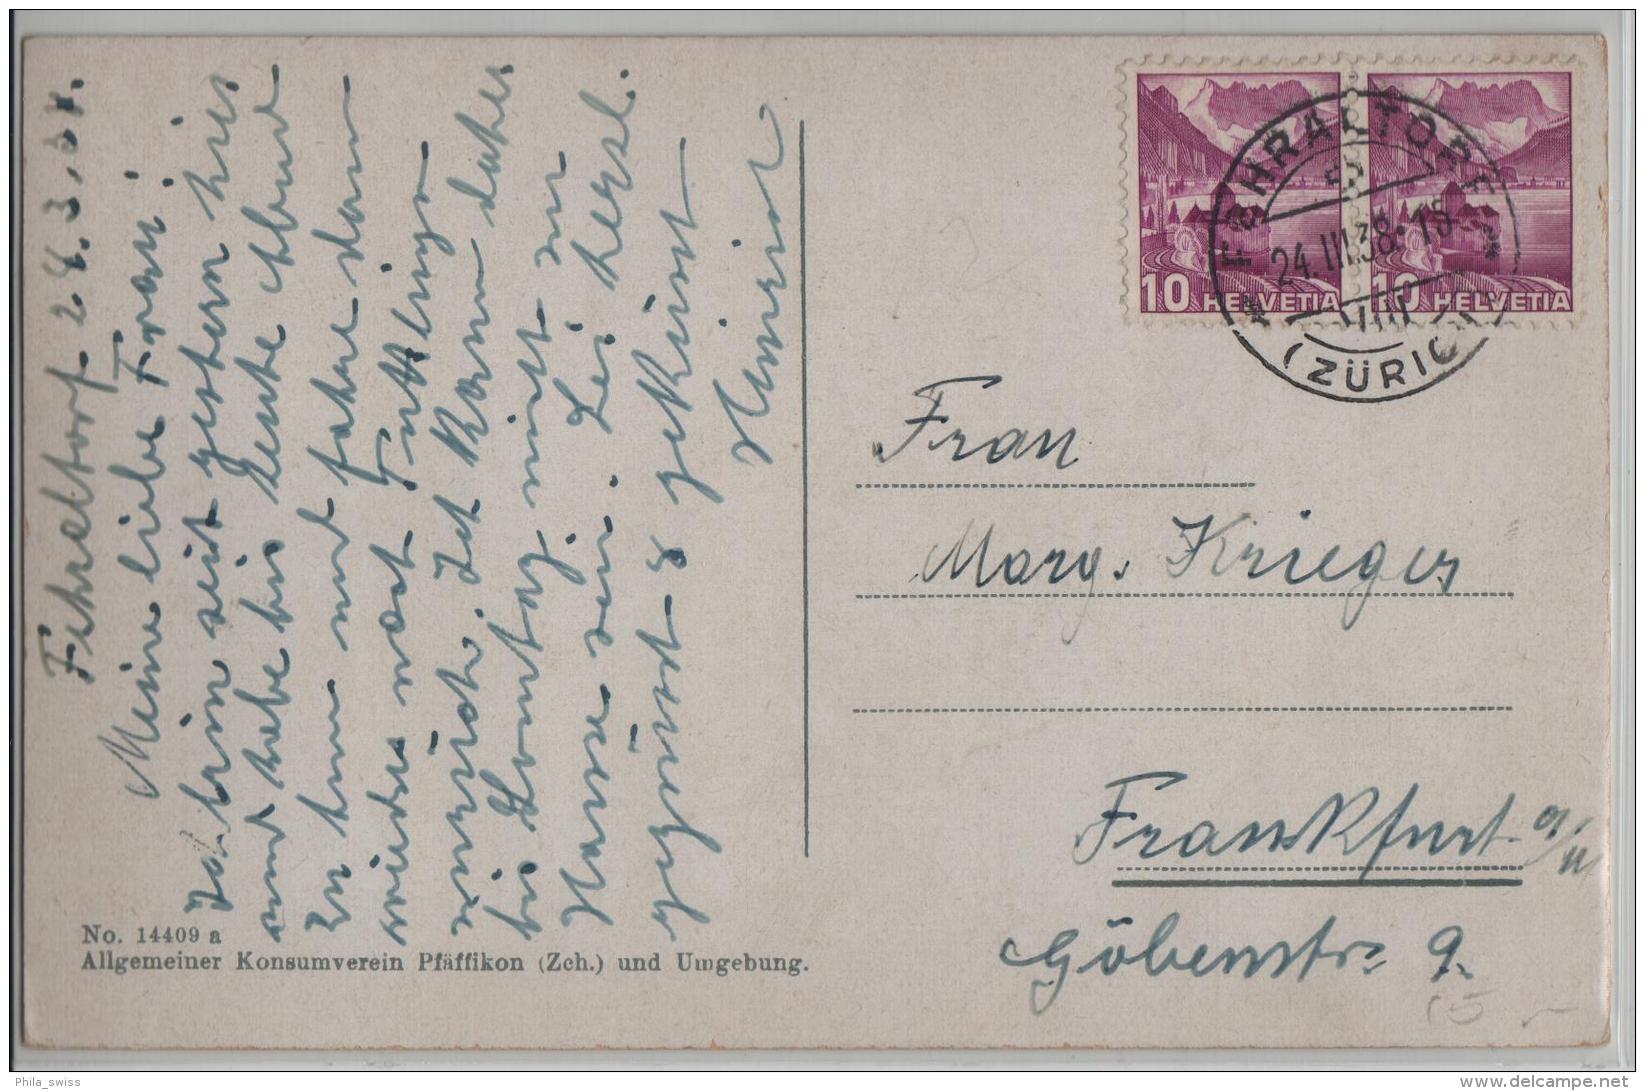 Fehraltorf 24.3.38.
Meine liebe Frau!
Ich bin seit gestern hier
und habe bis heute Abend
zu tun und fahre dann
wieder nach Tuttlingen
zurück. Ich kann daher
bis Sonntag nicht zu
Hause sein. Sei herzl.
gegrüsst & geküsst
Frau
Marg. Krieger
Frankfurt a/M
Göbenstr. 9.
10 HELVETIA 10 HELVETIA
FEHRALTORF
24.III.38
(ZÜRICH)
No. 14409 a
Allgemeiner Konsumverein Pfäffikon (Zch.) und Umgebung.
15 –
Phila_swiss
www.delcampe.net